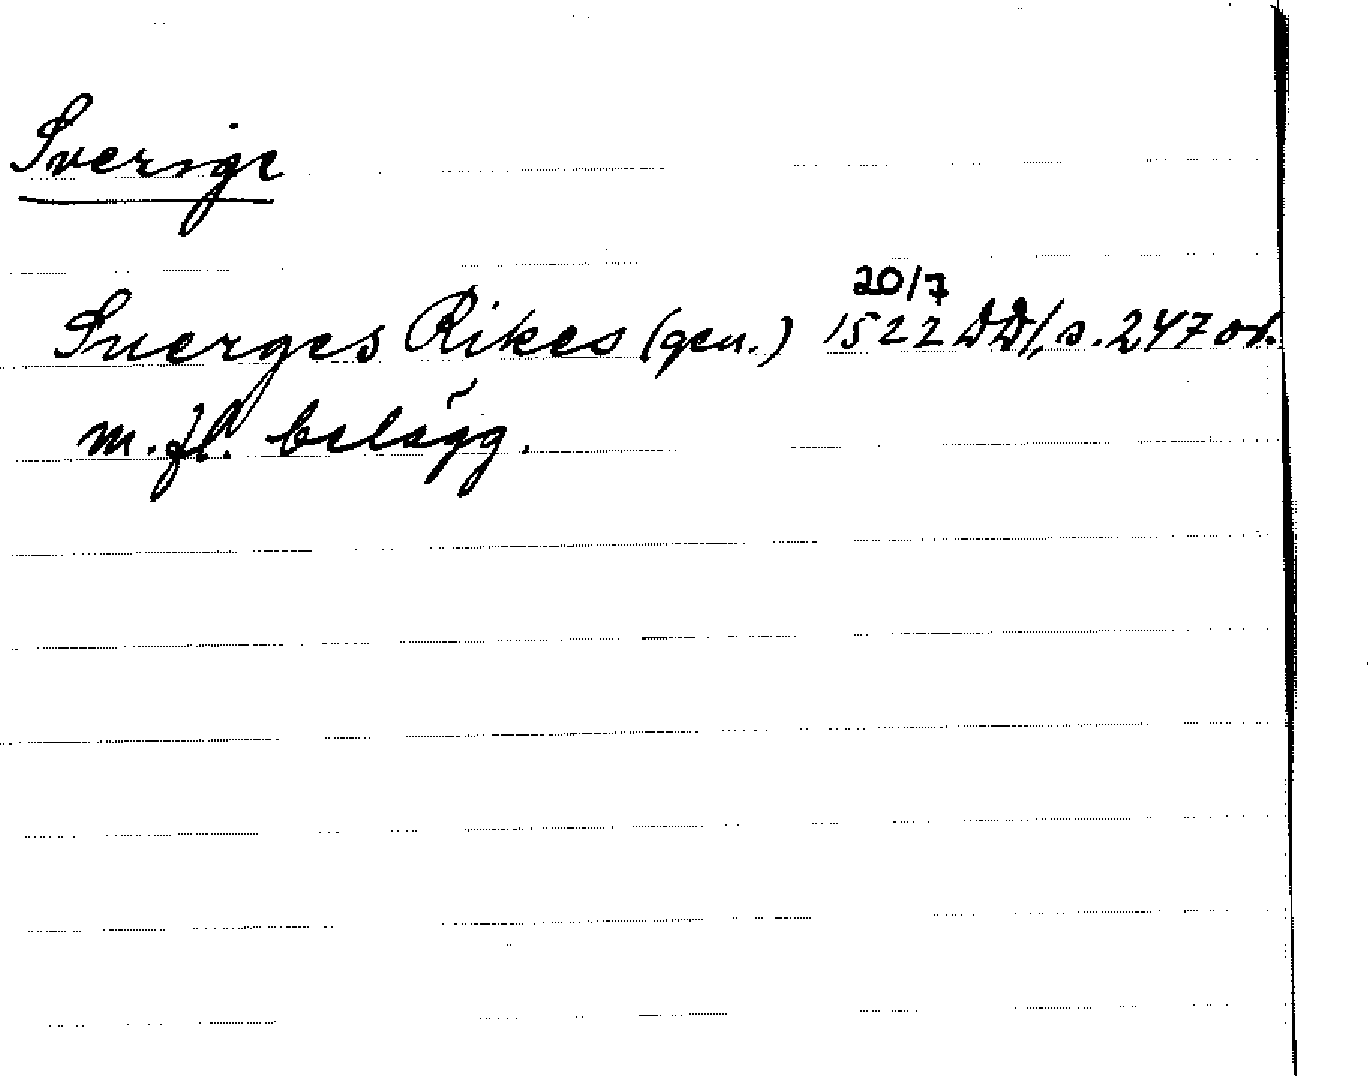 Sverige
Suerges Rikes (gen.) 20/7 1522 DD1, s. 247 or.
m. fl. belägg.